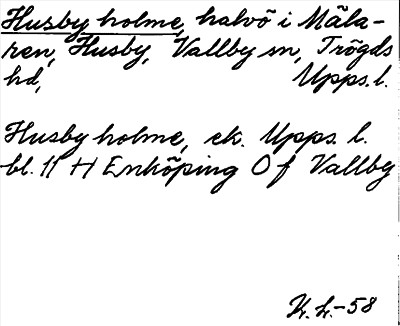 Husby holme, halvö i Mäla-
ren, Husby, Vallby sn, Trögds
hd, Upps. l.
Husby holme, ek. Upps. l.
bl. 11 H Enköping O f Vallby
K. L. -58